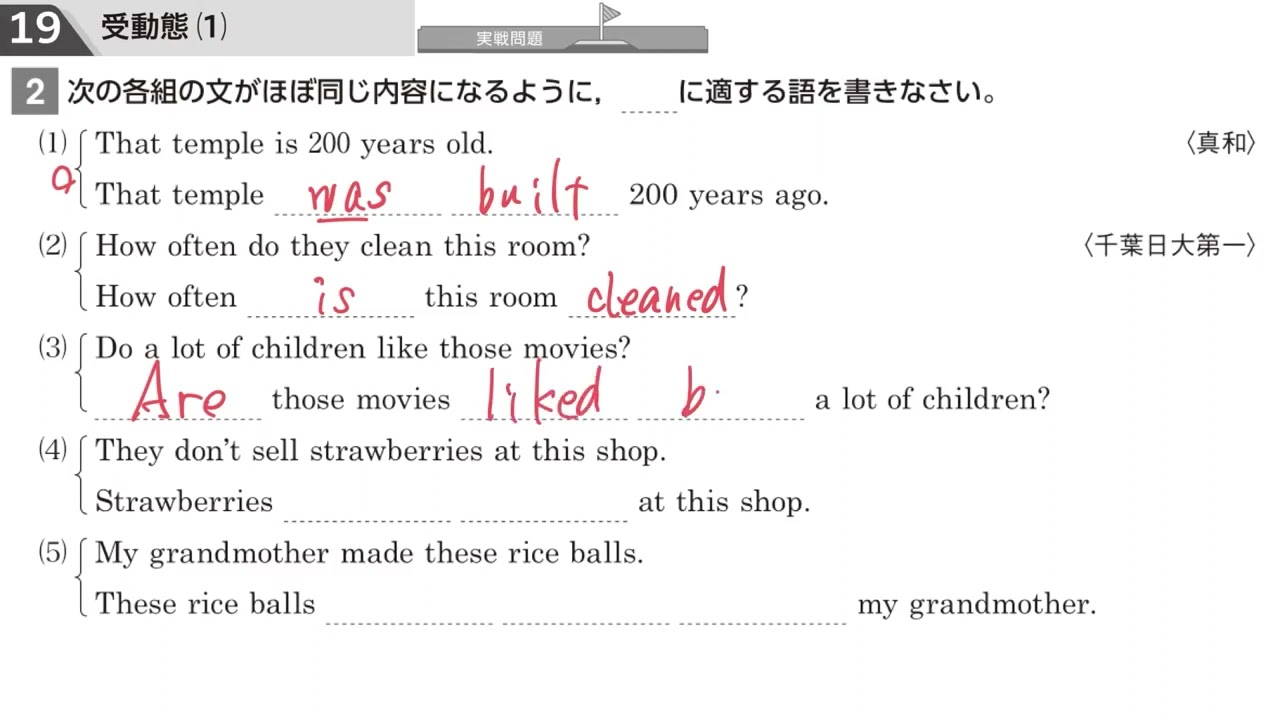 19 受動態(1) 実戦問題
2 次の各組の文がほぼ同じ内容になるように, に適する語を書きなさい。
(1) That temple is 200 years old. 〈真和〉
That temple was built 200 years ago.
(2) How often do they clean this room? 〈千葉日大第一〉
How often is this room cleaned?
(3) Do a lot of children like those movies?
Are those movies liked b a lot of children?
(4) They don't sell strawberries at this shop.
Strawberries at this shop.
(5) My grandmother made these rice balls.
These rice balls my grandmother.